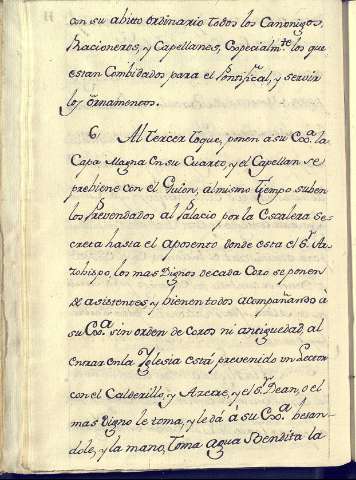 con su abito ordinario todos los Canonigos,
Racioneros, y Capellanes, Especialm.te los que
estan Combidados para el Pontifical, y servir
los ornamentos.
6 Al tercer toque, ponen a su Ex.a la
Capa Magna en su Cuarto, y el Capellan se
prebiene con el Guion, al mismo tiempo suben
los Prevendados al Palacio por la Escalera se-
creta hasta el aposento donde esta el S.r Ar-
zobispo, los mas Dignos de cada Coro se ponen
de asistentes, y bienen todos acompañando à
su Ex.a sin orden de coros ni antiguedad, al
entrar en la Yglesia está prevenido un Lector
con el Calderillo, y Azetre, y el S.r Dean, o el
mas Digno le toma, y le dá á su Ex.a besan-
dole, y la mano, toma agua Bendita la